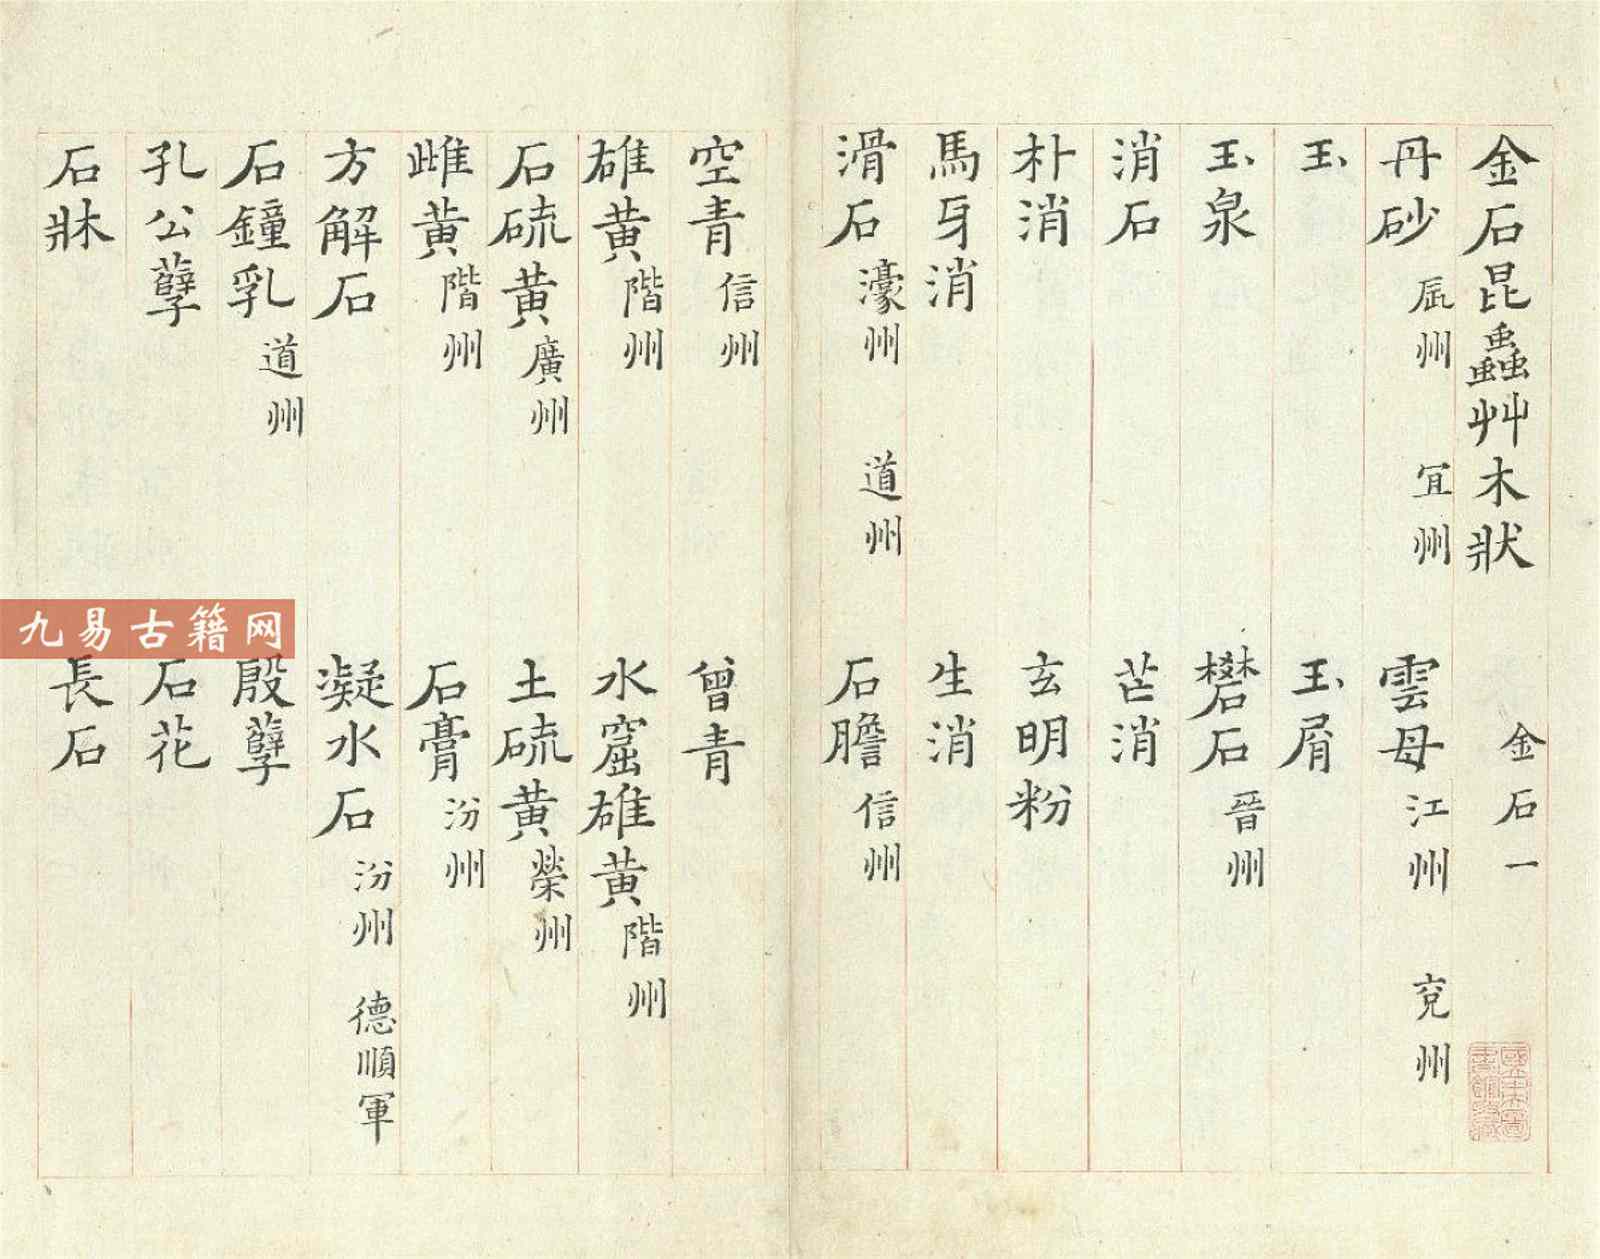 金石昆蟲艸木狀 金石一
丹砂 辰州 宜州 雲母 江州 兗州
玉 玉屑
玉泉 礬石 晉州
消石 芒消
朴消 玄明粉
馬牙消 生消
滑石 濠州 道州 石膽 信州
空青 信州 曾青
雄黃 階州 水窟雄黃 階州
石硫黃 廣州 土硫黃 榮州
雌黃 階州 石膏 汾州
方解石 凝水石 汾州 德順軍
石鐘乳 道州 殷孽
孔公孽 石花
石牀 長石
九易古籍网